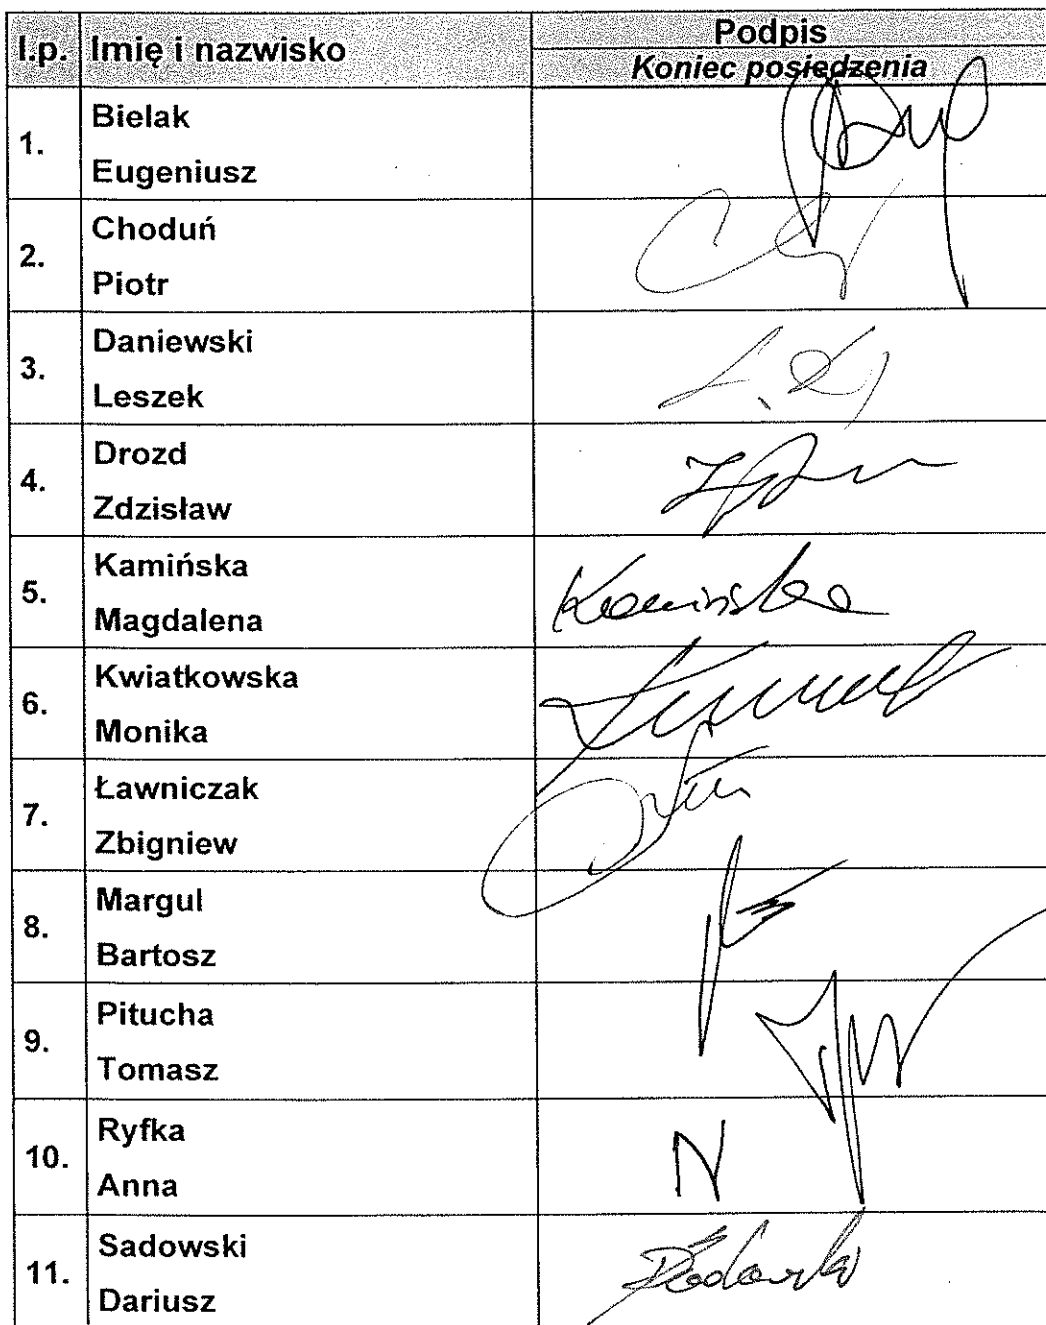 l.p. Imię i nazwisko Podpis
Koniec posiedzenia
1. Bielak
Eugeniusz
2. Choduń
Piotr
3. Daniewski
Leszek
4. Drozd
Zdzisław
5. Kamińska
Magdalena
Kamińska
6. Kwiatkowska
Monika
7. Ławniczak
Zbigniew
8. Margul
Bartosz
9. Pitucha
Tomasz
10. Ryfka
Anna
N
11. Sadowski
Dariusz